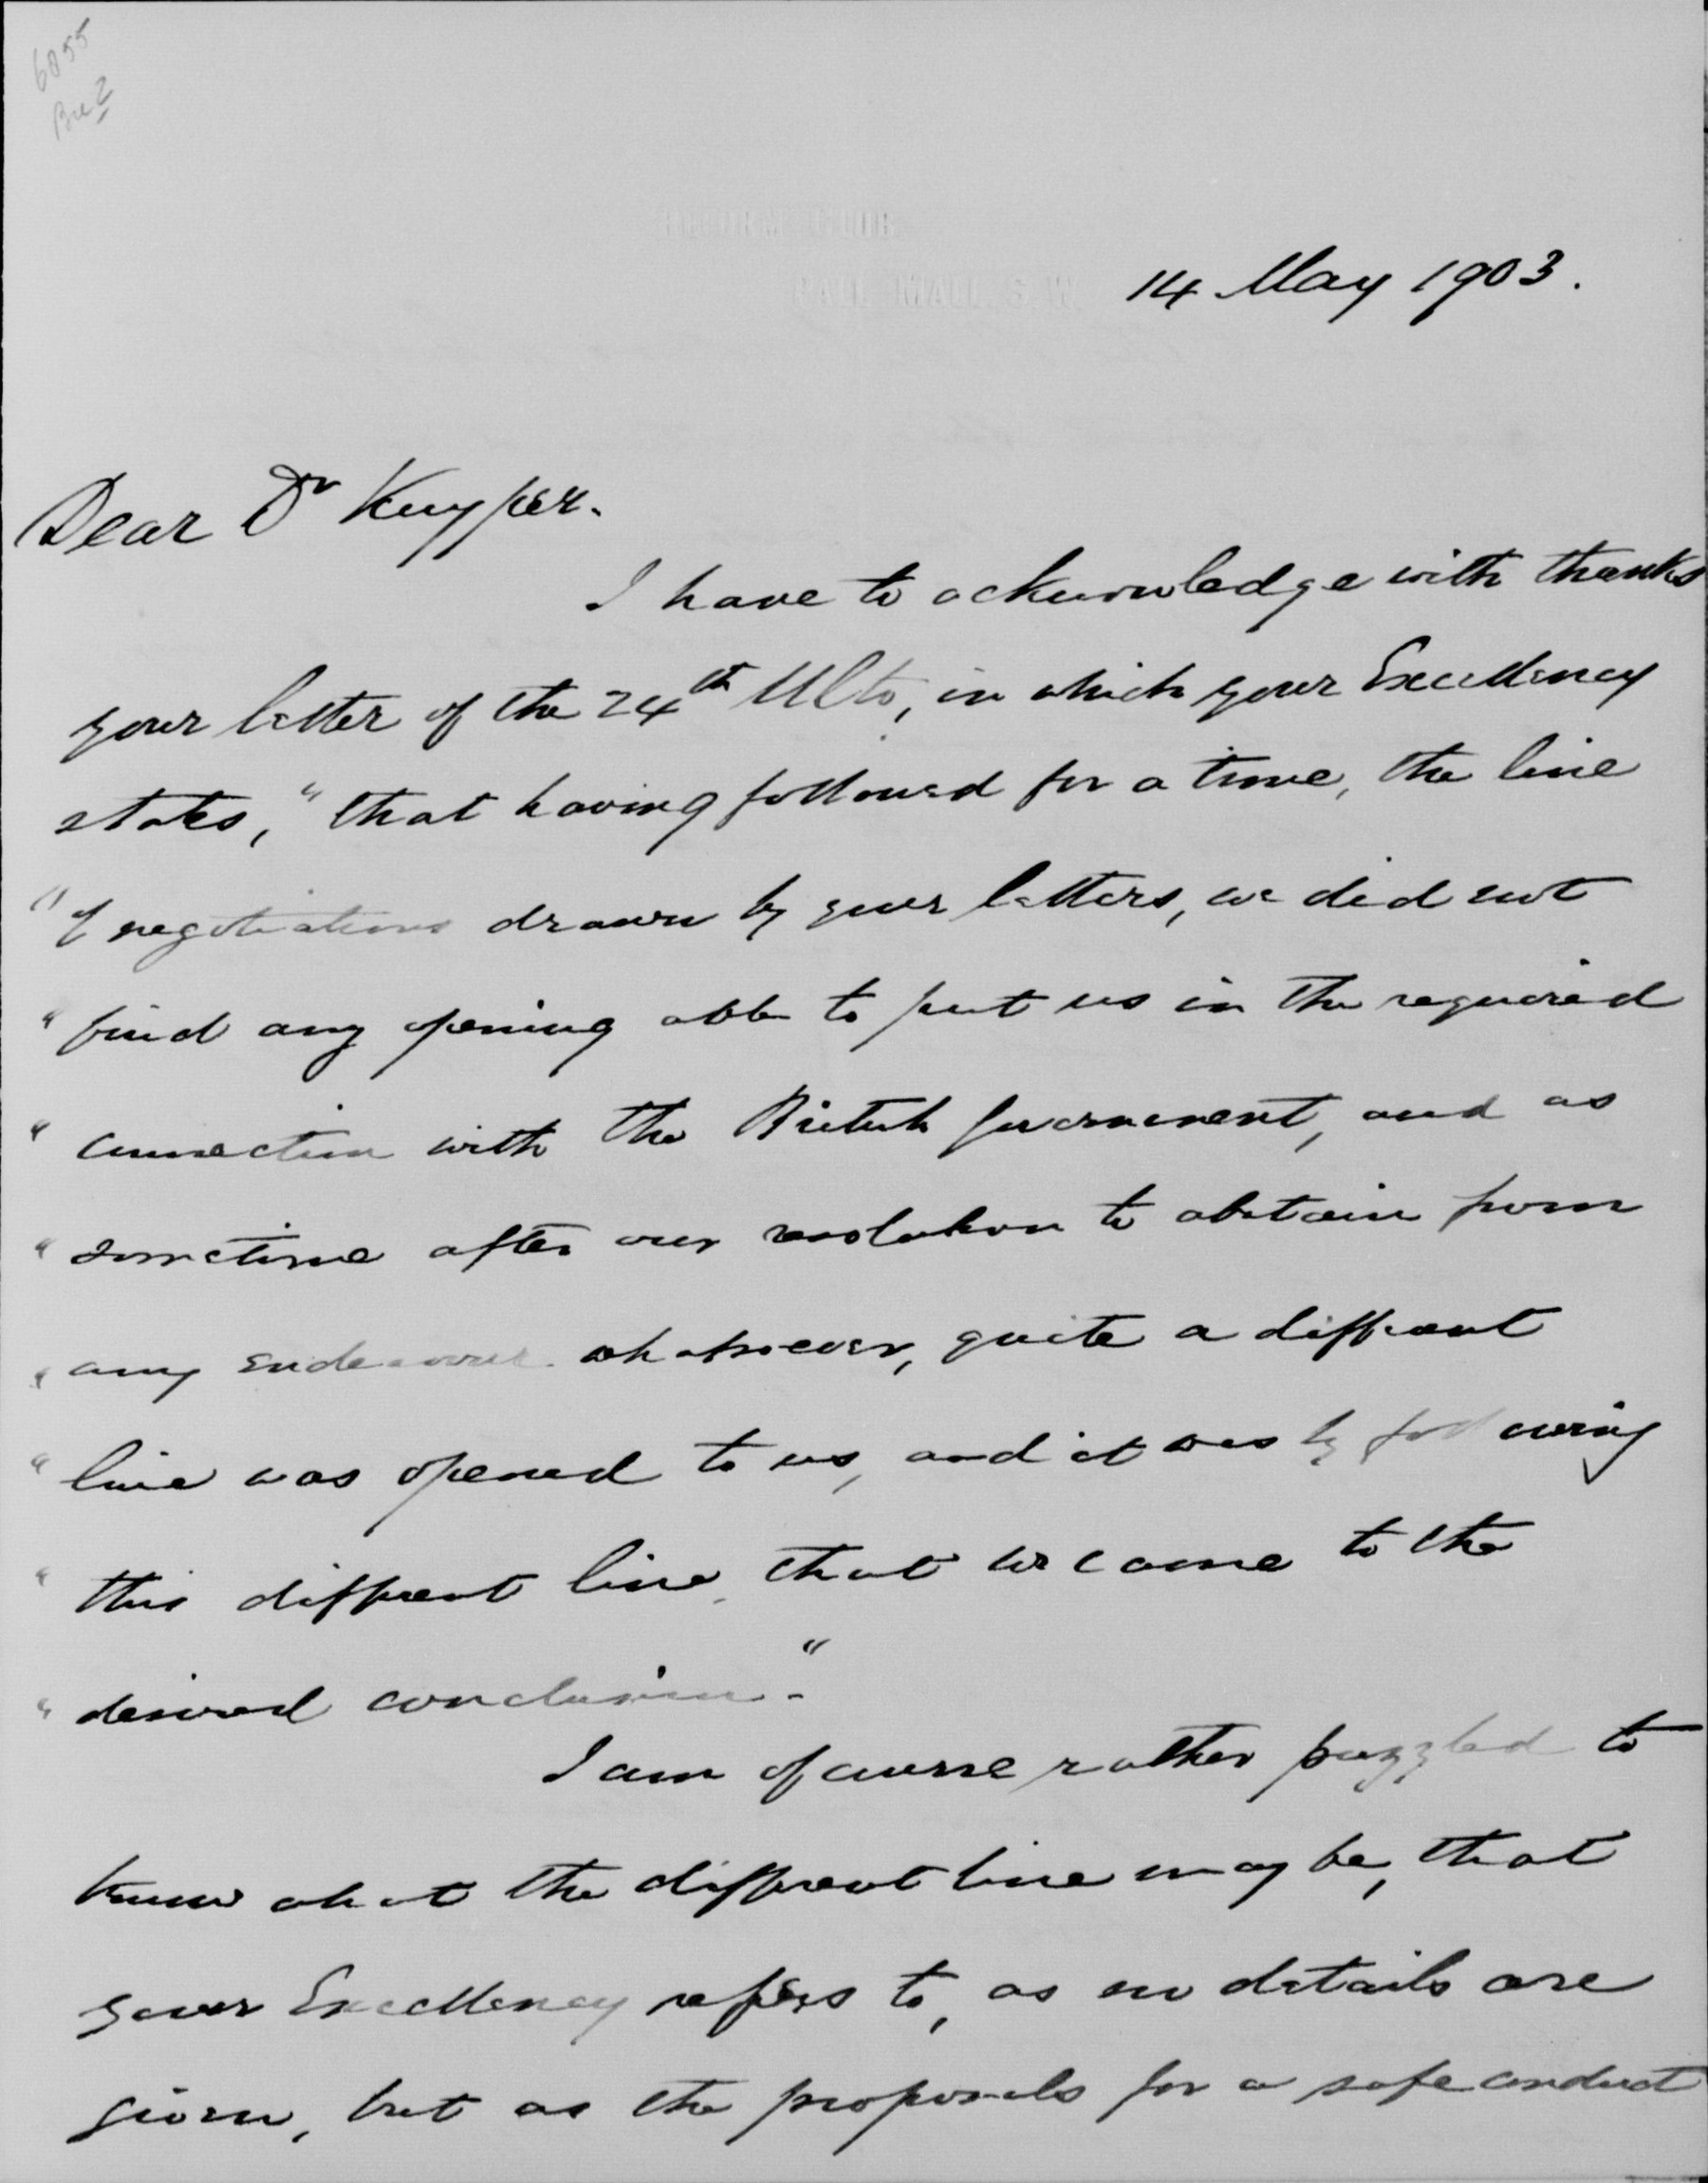 6055
Bre 2
REFORM CLUB
PALL MALL. S. W.
14 May 1903.
Dear Dr Kuyper.
I have to acknowledge with thanks
your letter of the 24th Ulto, in which your Excellency
states, "that having followed for a time, the line
"of negotiations drawn by your letters, we did not
"find any opening able to put us in the required
"connection with the British Government, and as
"sometime after our resolution to abstain from
"any endeavour whatsoever, quite a different
"line was opened to us, and it was by following
"this different line, that we came to the
"desired conclusion."
I am of course rather puzzled to
know what the different line may be, that
your Excellency refers to, as no details are
given, but as the proposals for a safe conduct